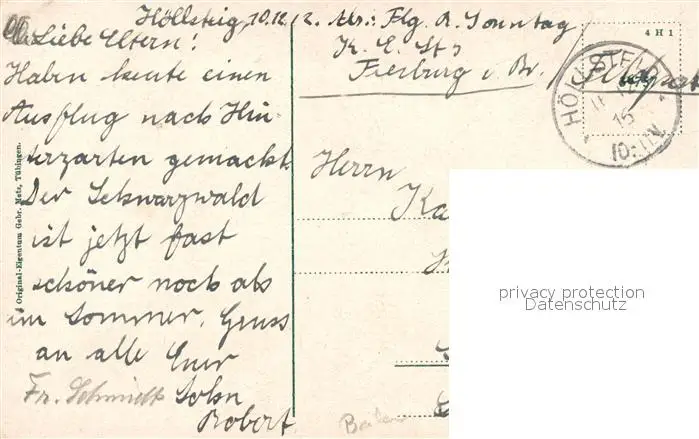 Höllsteig, 10.12.
Liebe Eltern!
Haben heute einen
Ausflug nach Hin-
terzarten gemacht.
Der Schwarzwald
ist jetzt fast
schöner noch als
im Sommer. Gruss
an alle Euer
Sohn
Robert
Fr. Schmidt
Adr.: Flg. R. Sonntag
Freiburg i. Br.
4 H 1
HÖLLSTEIG
15
10-11V
Herrn
Original-Eigentum Gebr. Metz, Tübingen.
privacy protection
Datenschutz